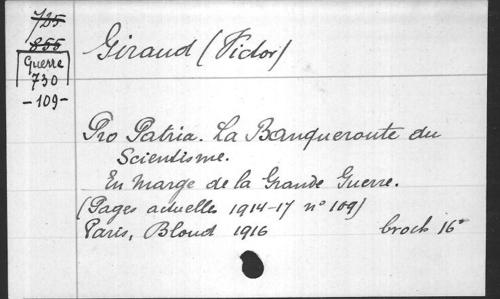 725
855
Guerre
730
-109-
Giraud (Victor)
Pro Patria. La Banqueroute du
Scientisme.
En marge de la Grande Guerre.
(Pages actuelles 1914-17 n° 109)
Paris, Bloud 1916 broch 16°